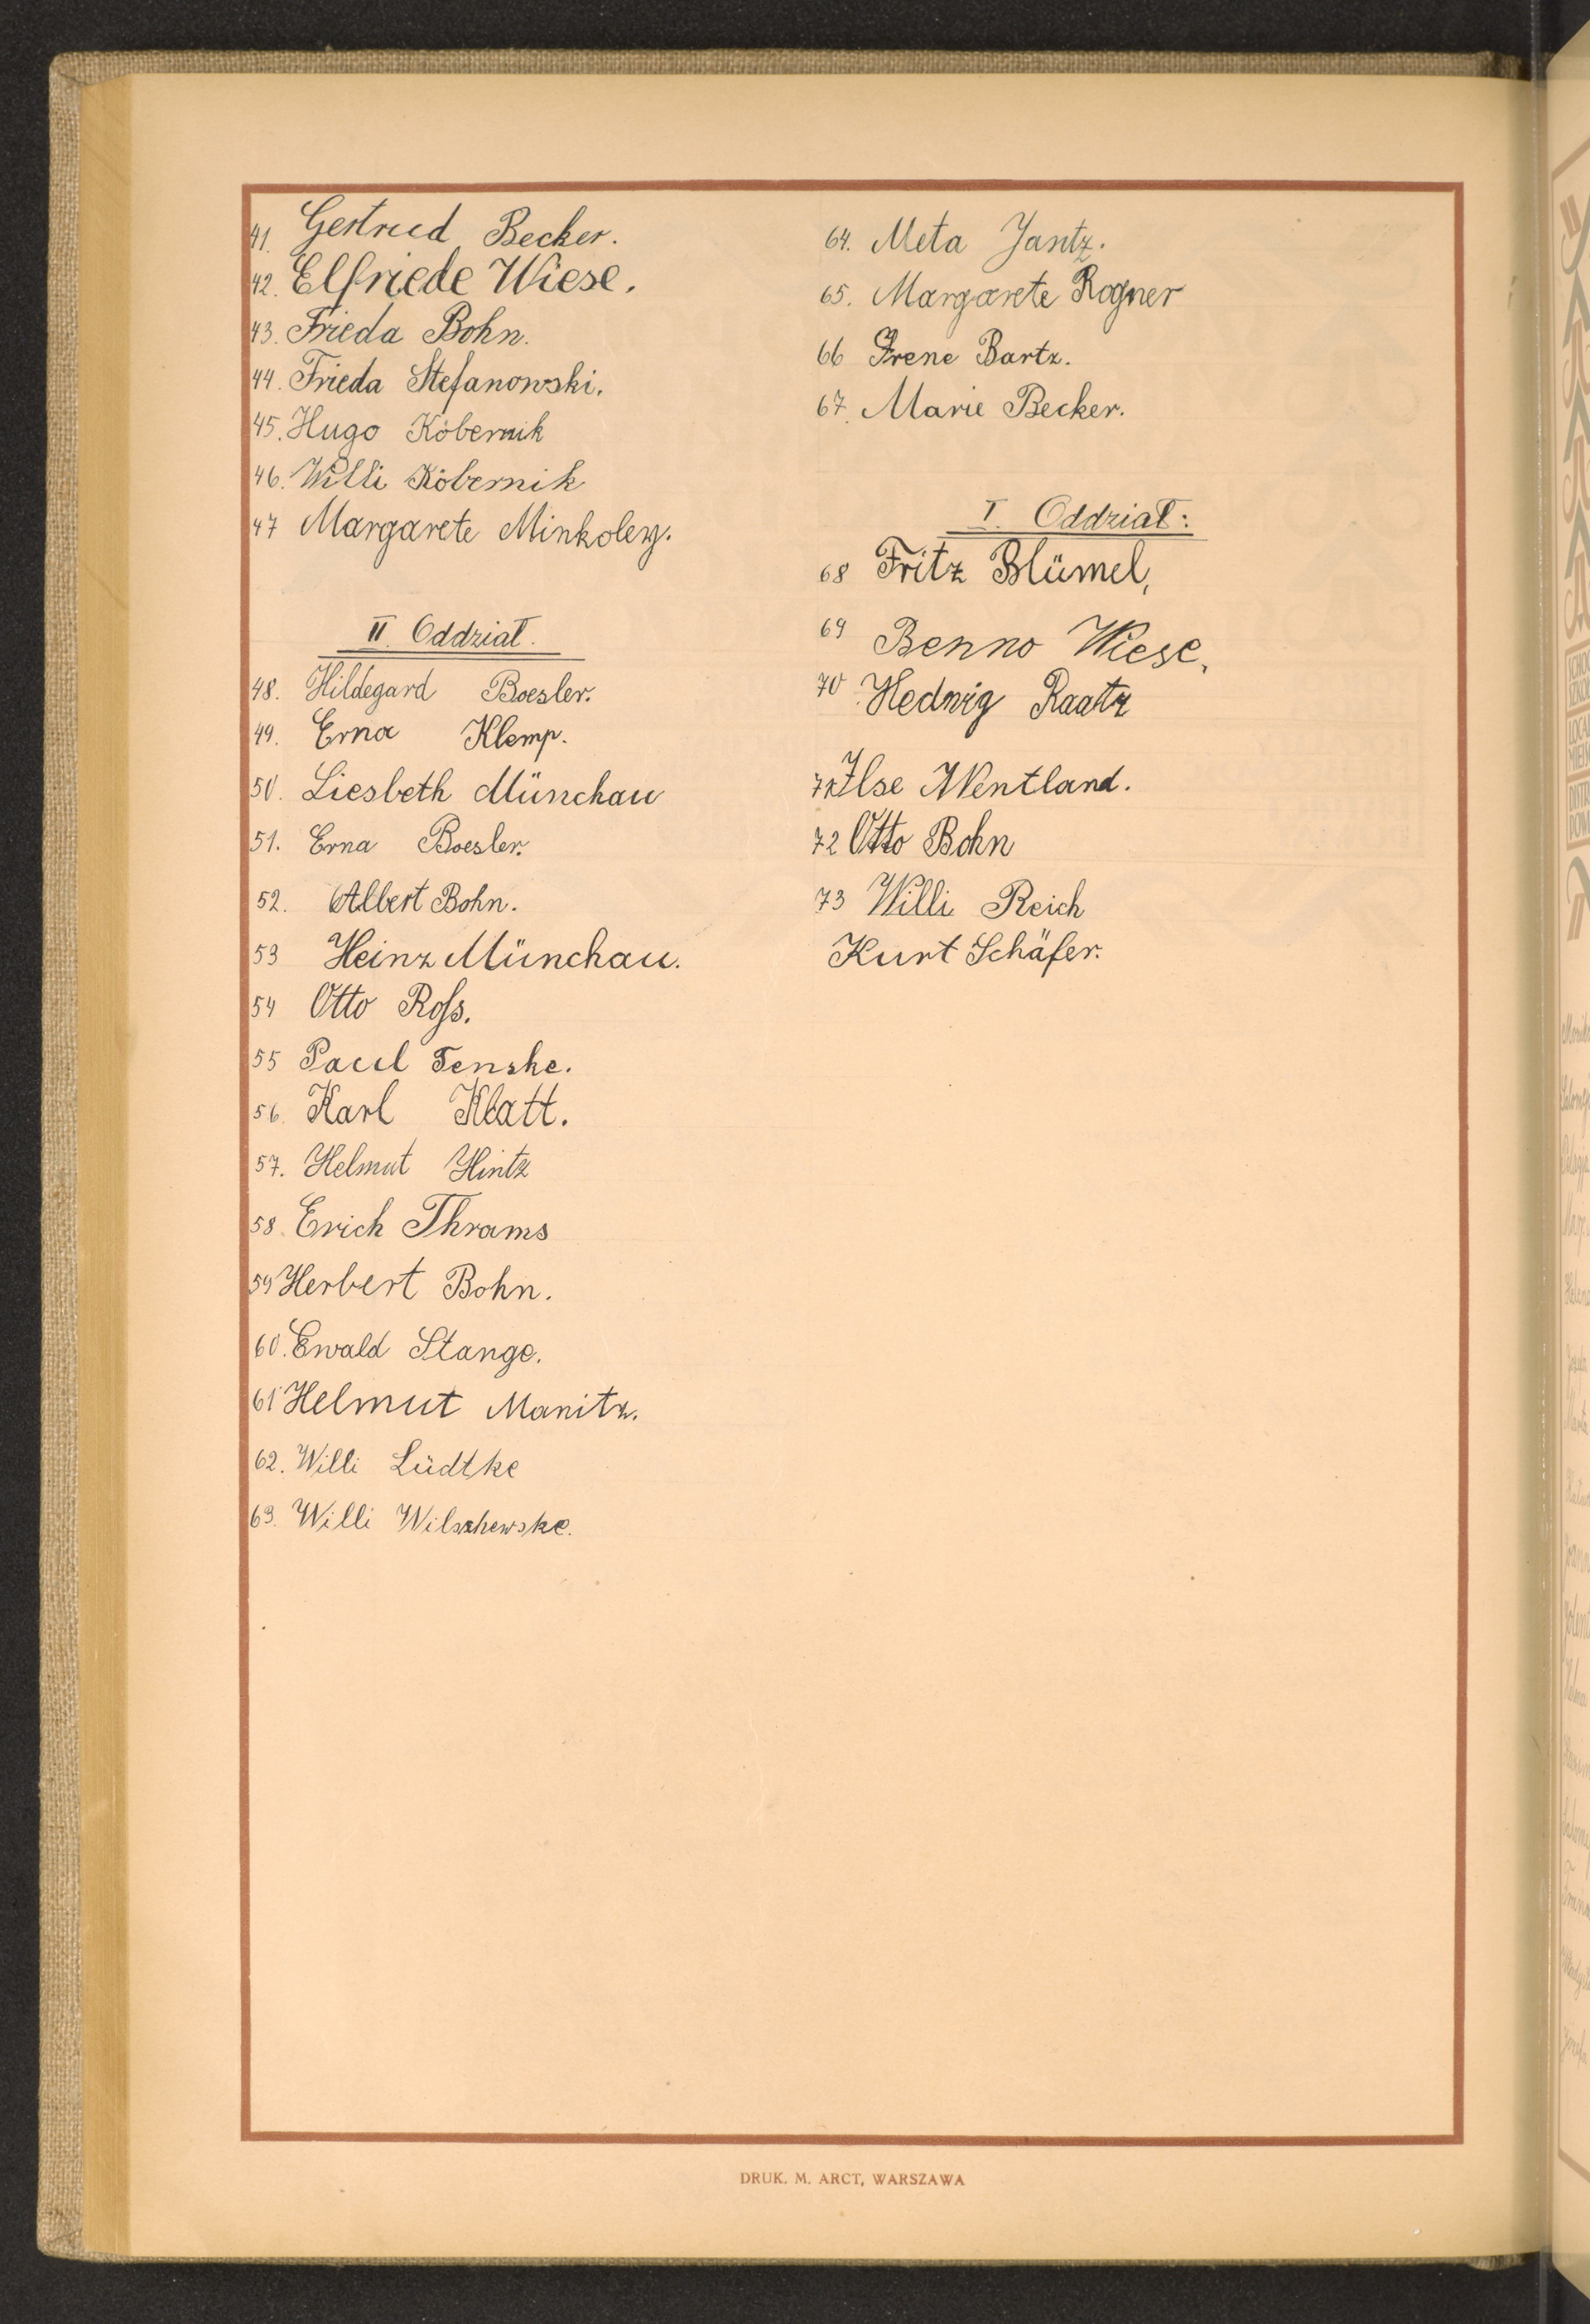 41. Gertrud Becker.
42. Elfriede Wiese.
43. Frieda Bohn.
44. Frieda Stefanowski.
45. Hugo Köbernik
46. Willi Köbernik
47 Margarete Minkoley.
II Oddział.
48. Hildegard Boesler.
49. Erna Klemp.
50. Liesbeth Münchau
51. Erna Boesler.
52. Albert Bohn.
53 Heinz Münchau.
54 Otto Roſs.
55 Paul Tenske.
56. Karl Klatt.
57. Helmut Hintz
58. Erich Thrams
59 Herbert Bohn.
60. Ewald Stange.
61 Helmut Manitz.
62. Willi Lüdtke
63. Willi Wilschewske.
64. Meta Jantz.
65. Margarete Rogner
66 Irene Bartz.
67. Marie Becker.
I. Oddział:
68 Fritz Blümel,
69 Benno Wiese.
70 Hedwig Raatz
71 Ilse Wentland.
72 Otto Bohn
73 Willi Reich
Kurt Schäfer.
DRUK. M. ARCT, WARSZAWA